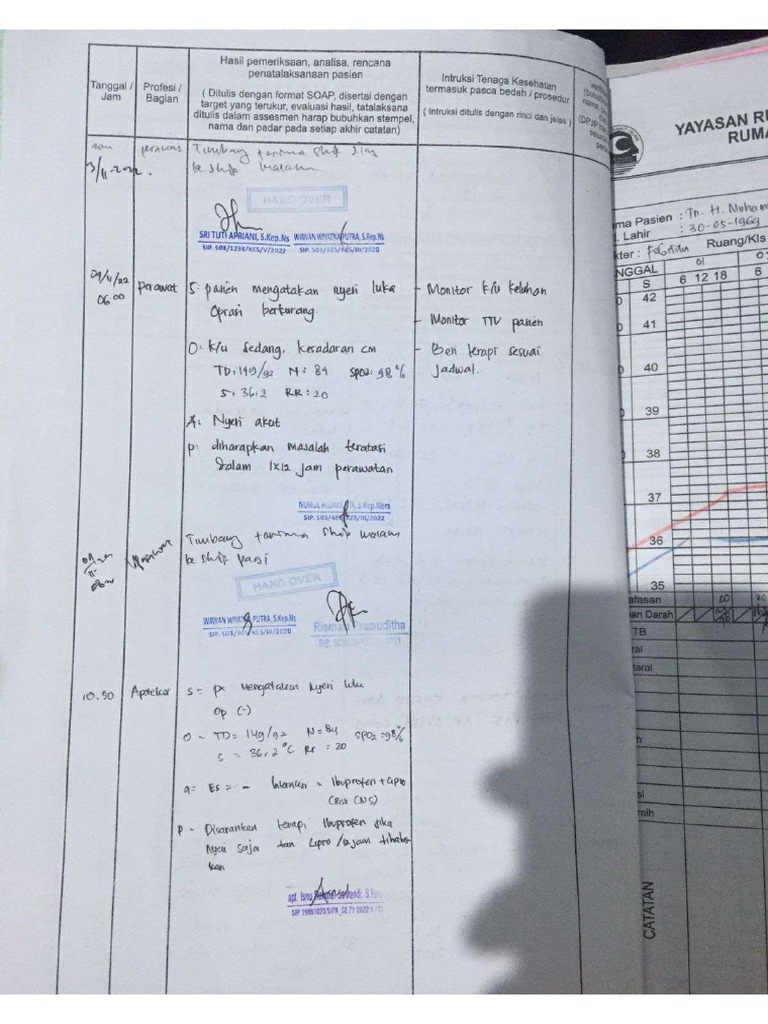 Tanggal / Jam
Profesi / Bagian
Hasil pemeriksaan, analisa, rencana
penatalaksanaan pasien
( Ditulis dengan format SOAP, disertai dengan
target yang terukur, evaluasi hasil, tatalaksana
ditulis dalam assesmen harap bubuhkan stempel,
nama dan padar pada setiap akhir catatan)
Intruksi Tenaga Kesehatan
termasuk pasca bedah / prosedur
( Intruksi ditulis dengan rinci dan jelas )
Timbang terima shift siang
ke shift malam
HAND OVER
SRI TUTI APRIANI, S.Kep.Ns
SIP. 503/1238/KES/V/2022
WAWAN WIYATNA PUTRA, S.Kep.Ns
SIP. 503/305/KES/III/2020
04/11/22
06.00
Perawat
S: pasien mengatakan nyeri luka
Oprasi berkurang.
O: k/u sedang, kesadaran CM
TD: 149/92 N: 84 SPO2: 98 %
S: 36,2 RR: 20
A: Nyeri akut
P: diharapkan masalah teratasi
dalam 1x12 jam perawatan
- Monitor k/u keluhan
- Monitor TTV pasien
- Beri terapi sesuai
jadwal.
Timbang terima shift malam
ke shift pagi
HAND OVER
WAWAN WIYATNA PUTRA, S.Kep.Ns
Pramuditha
10.50
Apoteker
S = px mengatakan nyeri luka
Op (-)
O = TD = 149/92 N = 84 SPO2 = 98%
S = 36,2 °C Rr = 20
a = Es = - Interaksi = Ibuprofen + Cipro
P = Disarankan terapi Ibuprofen jika
Nyeri saja dan Cipro
kan
YAYASAN
Pasien : Tn. H.
Lahir : 30-05-1969
Ruang/Kls
S
6 12 18
6
42
41
40
39
38
37
36
35
Darah
TB
CATATAN